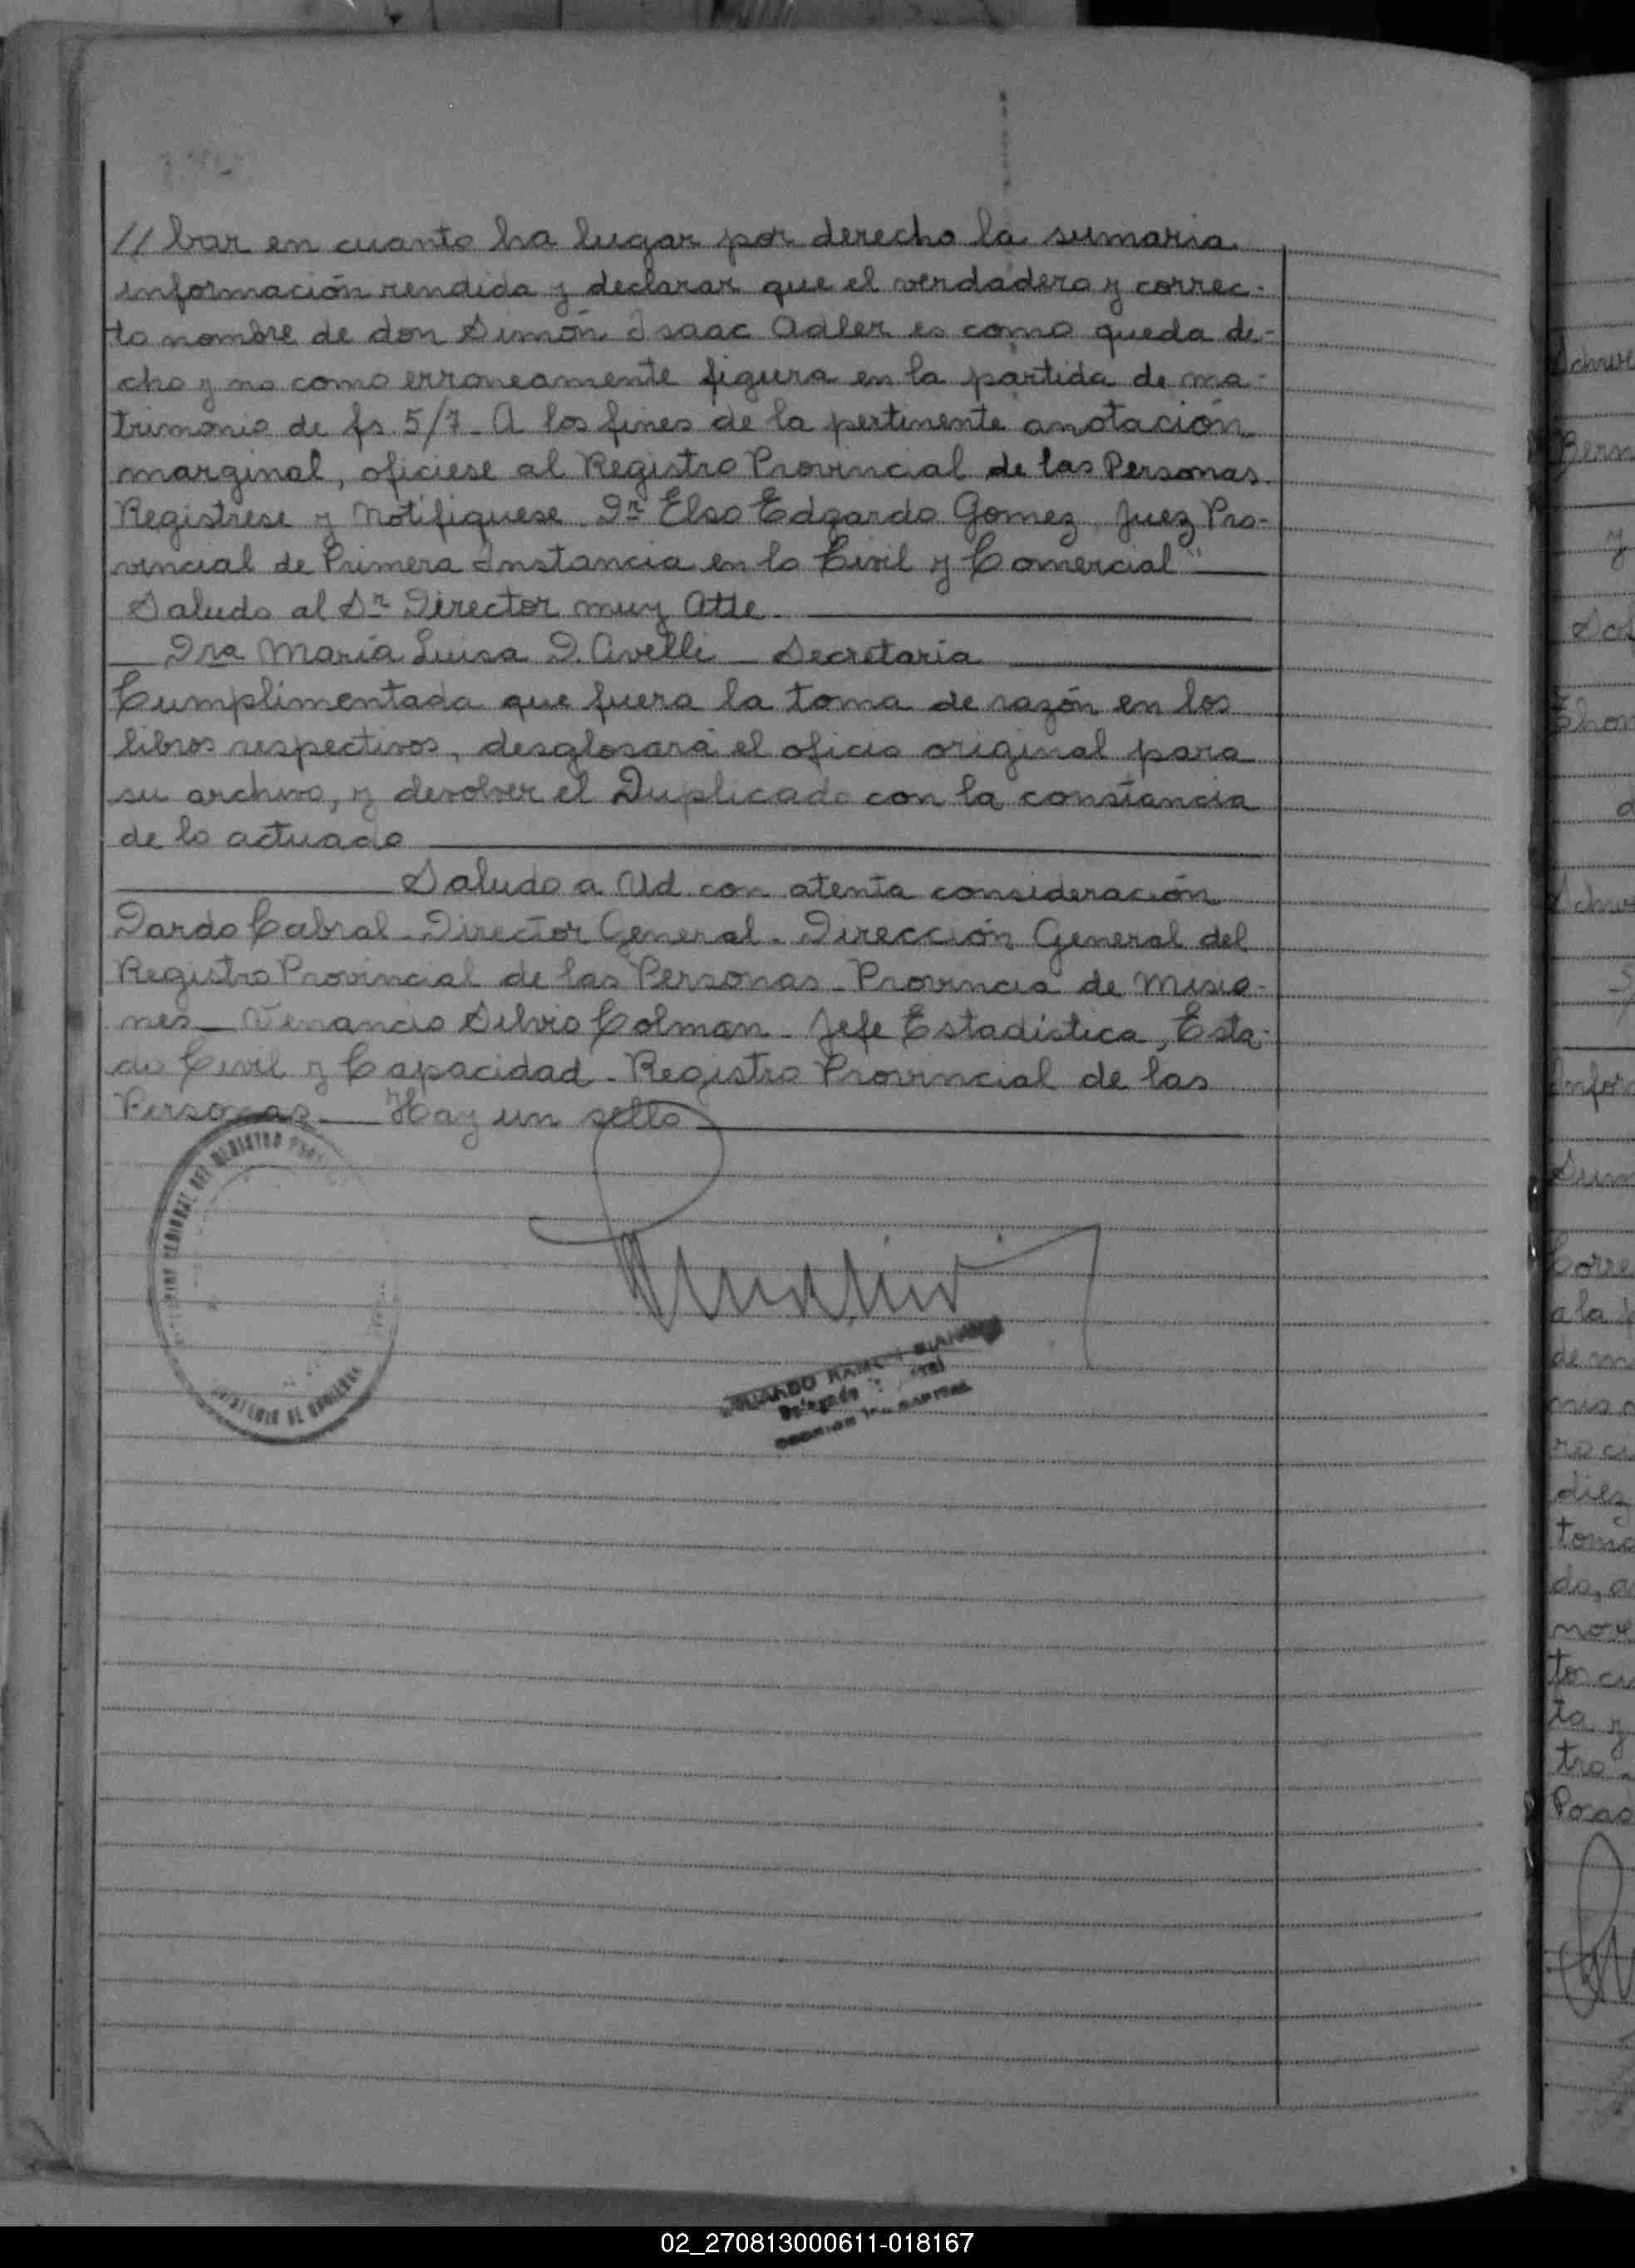 // bar en cuanto ha lugar por derecho la sumaria
información rendida y declarar que el verdadero y correc-
to nombre de don Simón Isaac Adler es como queda di-
cho y no como erroneamente figura en la partida de ma-
trimonio de fs 5/7_ A los fines de la pertinente anotación
marginal, oficiese al Registro Provincial de las Personas.
Registrese y Notifiquese. Dr Elso Edgardo Gomez, Juez Pro-
vincial de Primera Instancia en lo Civil y Comercial"
Saludo al Sr Director muy Atte.
Dra María Luisa D. Avelli _ Secretaria
Cumplimentada que fuera la toma de razón en los
libros respectivos, desglosará el oficio original para
su archivo, y devolver el Duplicado con la constancia
de lo actuado
Saludo a Ud con atenta consideración
Dardo Cabral _ Director General _ Dirección General del
Registro Provincial de las Personas _ Provincia de Misio-
nes _ Venancio Silvio Colman _ Jefe Estadística, Esta-
do Civil y Capacidad _ Registro Provincial de las
Personas _ Hay un sello
DEL REGISTRO
RAMON
Delegado
CAPITAL
Schwe
Bern
y
Sol
Schw
5
Infor
Corre
a la
de m
diez
tomo
do, a
nove
ta y
tro
Posa
02_270813000611-018167